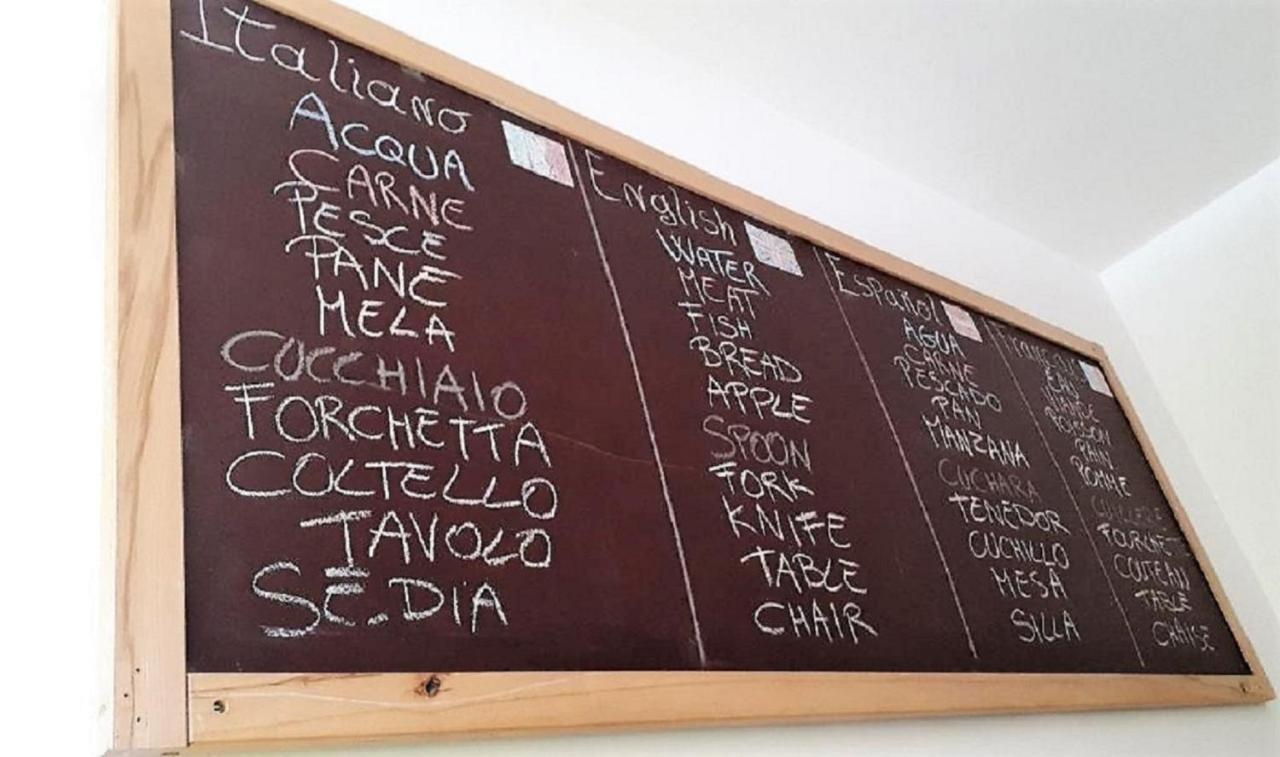 Italiano
ACQUA
CARNE
PESCE
PANE
MELA
CUCCHIAIO
FORCHETTA
COLTELLO
TAVOLO
SEDIA
English
WATER
MEAT
FISH
BREAD
APPLE
SPOON
FORK
KNIFE
TABLE
CHAIR
Español
AGUA
CARNE
PESCADO
PAN
MANZANA
CUCHARA
TENEDOR
CUCHILLO
MESA
SILLA
VIANDE
POISSON
PAIN
POMME
TABLE
CHAISE